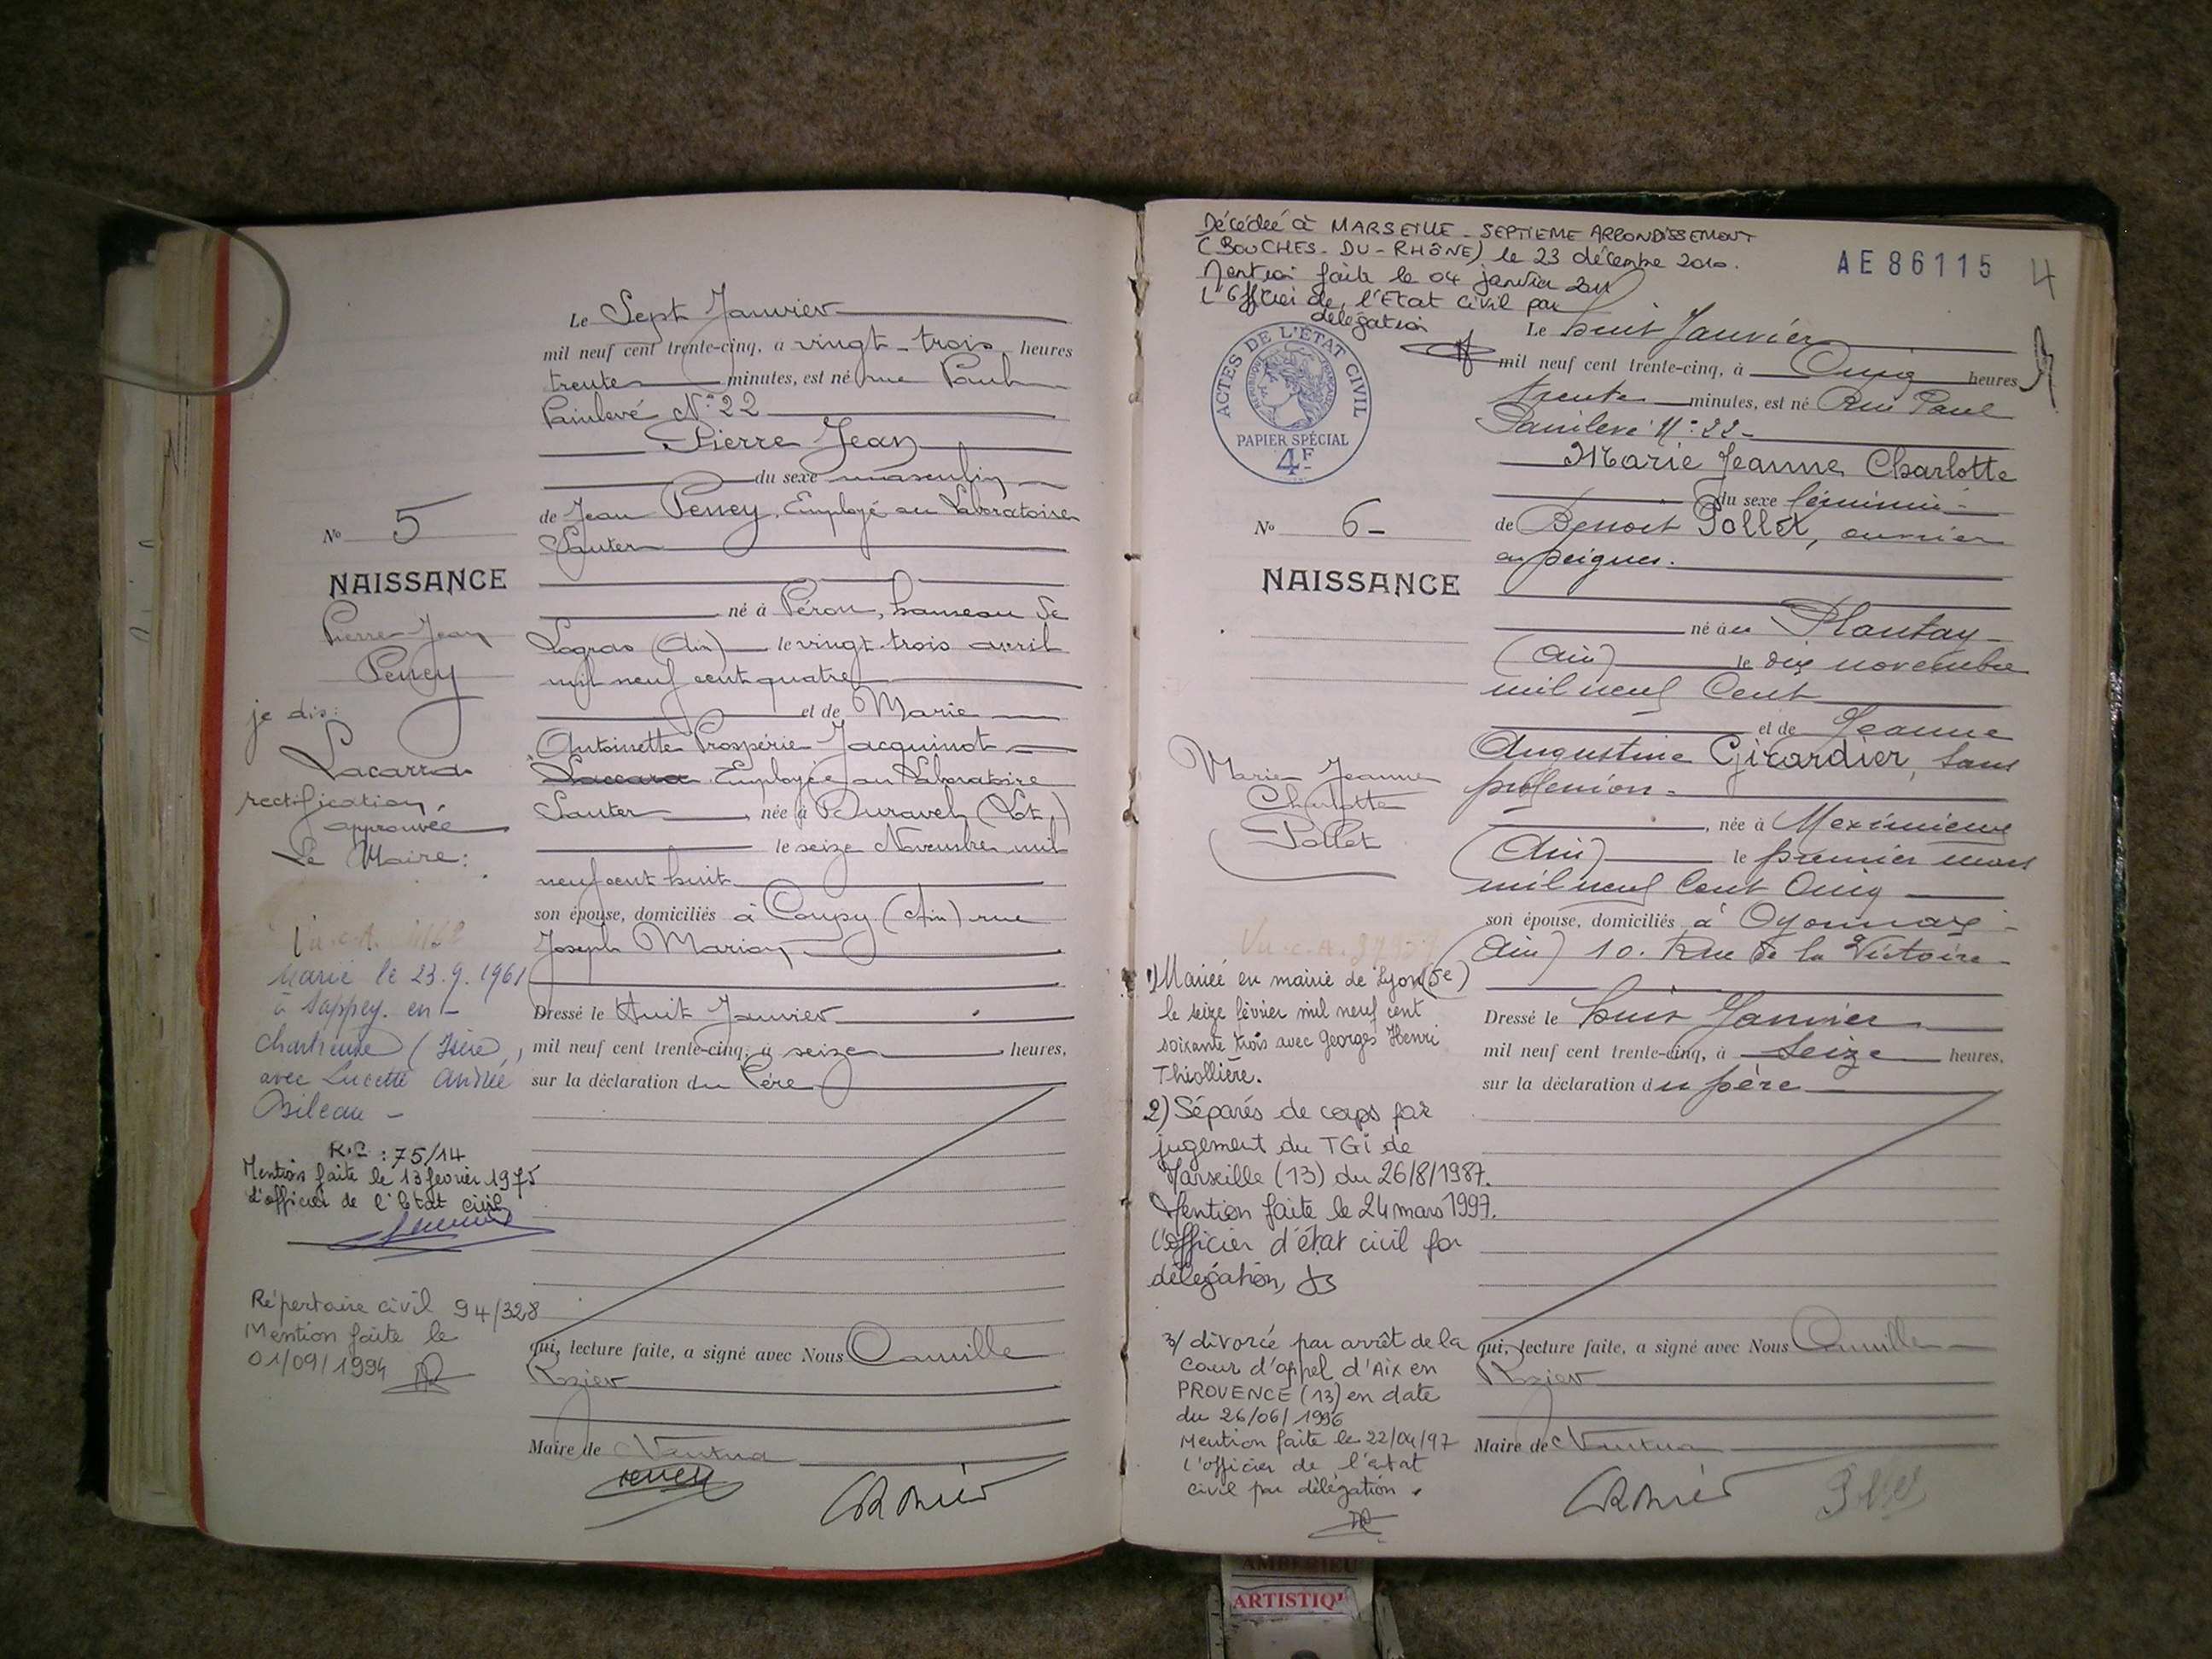 Le Sept Janvier
mil neuf cent trente-cinq, à vingt-trois heures
trente minutes, est né rue Paul
Painlevé N° 22
Pierre Jean
du sexe masculin
de Jean Penney, Employé au Laboratoire
Sauter
N° 5
NAISSANCE
né à Péron, hameau de
Logras (Ain) le vingt-trois avril
mil neuf cent quatre
et de Marie
Antoinette Prospérie Jacquinot
Laccara Employée au Laboratoire
Sauter, née à Duravel (Lot)
le seize Novembre mil
neuf cent huit
son épouse, domiciliés à Coupy (Ain) rue
Joseph Marion
Dressé le Huit Janvier
mil neuf cent trente-cinq, à seize heures,
sur la déclaration du Père
qui, lecture faite, a signé avec Nous Camille
Rozier
Maire de Nantua
Pierre Jean
Penney
je dis:
Lacarra
rectification
approuvée
Le Maire:
Marié le 23.9.1961
à Sappey-en-
Chartreuse (Isère),
avec Lucette Andrée
Bileau -
R.C : 75/14
Mention faite le 13 février 1975
L'officier de l'Etat civil
Répertoire civil 94/328
Mention faite le
01/09/1994
Décédée à MARSEILLE - SEPTIEME ARRONDISSEMENT
(BOUCHES-DU-RHÔNE) le 23 décembre 2010.
Mention faite le 04 janvier 2011
L'Officier de l'Etat Civil par
délégation
AE 86115
4
ACTES DE L'ÉTAT CIVIL
PAPIER SPÉCIAL
4F
Le huit Janvier
mil neuf cent trente-cinq, à Onze heures
trente minutes, est né Rue Paul
Painlevé N° 22-
Marie Jeanne Charlotte
du sexe féminin
de Benoit Pollet, ouvrier
en peignes.
N° 6-
NAISSANCE
né au Plantay-
(Ain) le dix novembre
mil neuf Cent
et de Jeanne
Augustine Girardier, sans
profession-
, née à Meximieux
(Ain) le premier mars
mil neuf Cent Onze
son épouse, domiciliés à Oyonnax-
(Ain) 10. Rue de la Victoire-
Dressé le huit Janvier
mil neuf cent trente-cinq, à Seize heures,
sur la déclaration du père
qui, lecture faite, a signé avec Nous Camille
Rozier
Maire de Nantua
Marie Jeanne
Charlotte
Pollet
Vu. c. A.
1) Mariée en mairie de Lyon (5e)
le seize février mil neuf cent
soixante trois avec Georges Henri
Thiollière.
2) Séparés de corps par
jugement du TGI de
Marseille (13) du 26/8/1987.
Mention faite le 24 mars 1997.
L'officier d'état civil par
délégation,
3/ divorcée par arrêt de la
Cour d'appel d'Aix en
PROVENCE (13) en date
du 26/06/1996
Mention faite le 22/04/97
L'officier de l'état
civil par délégation.
AMBERIEU
ARTISTIQ